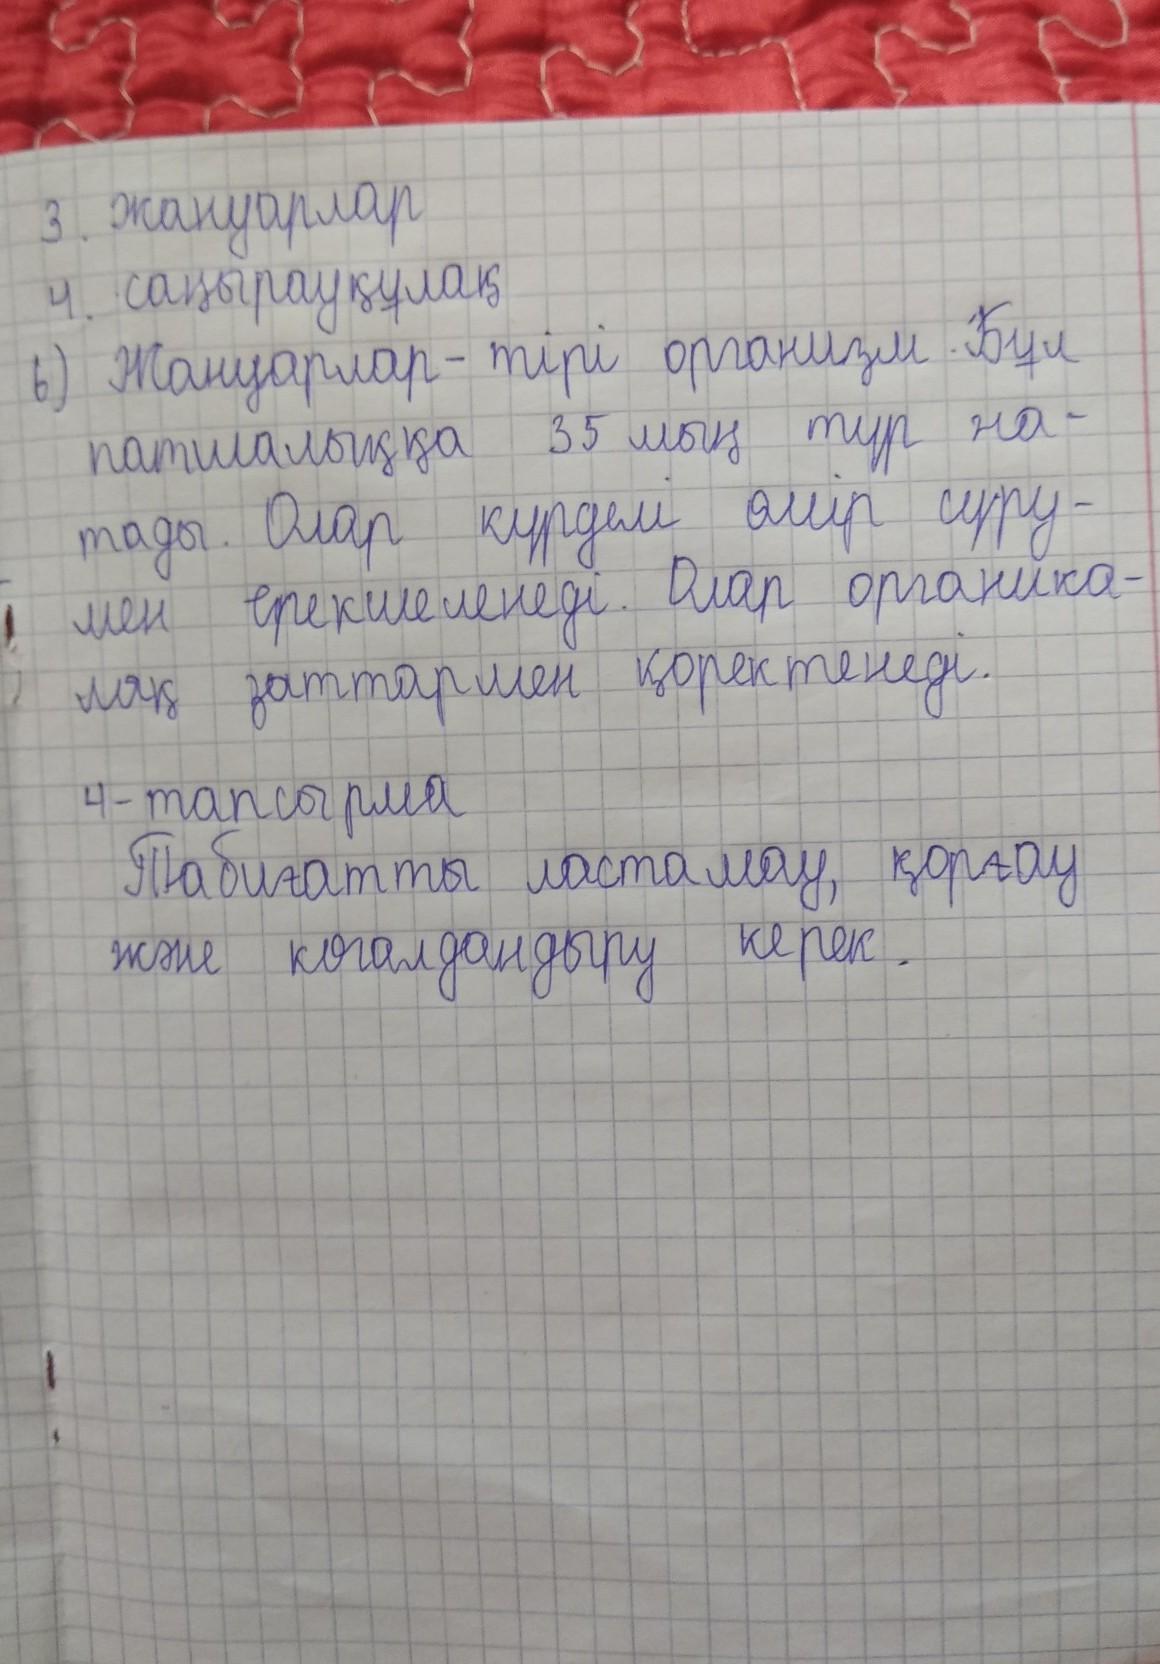 3. жануарлар
4. саңырауқұлақ
b) Жануарлар-тірі организм. Бұл
патшалыққа 35 мың түр жа-
тады. Олар күрделі өмір сүру-
мен ерекшеленеді. Олар органика-
лық заттармен қоректенеді.
4-тапсырма
Табиғатты ластамау, қорғау
және көгалдандыру керек.